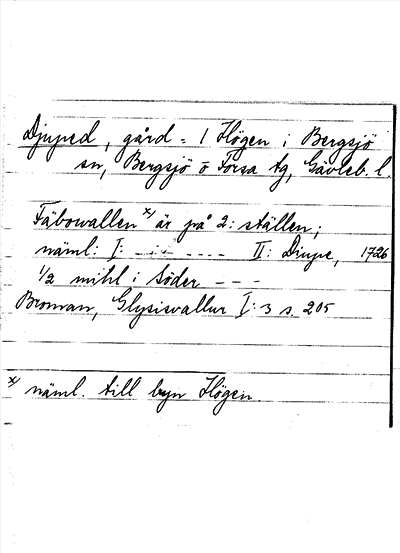 Djuped, gård = 1 Högen i Bergsjö
sn, Bergsjö o Forsa tg, Gävleb. l.
Fäbowallen x/ är på 2: ställen;
näml: I: - - - - - - - II: Diupe, 1726
1/2 mihl i söder - - -
Broman, Glysisvallur I:3 s. 205
x/ näml. till byn Högen